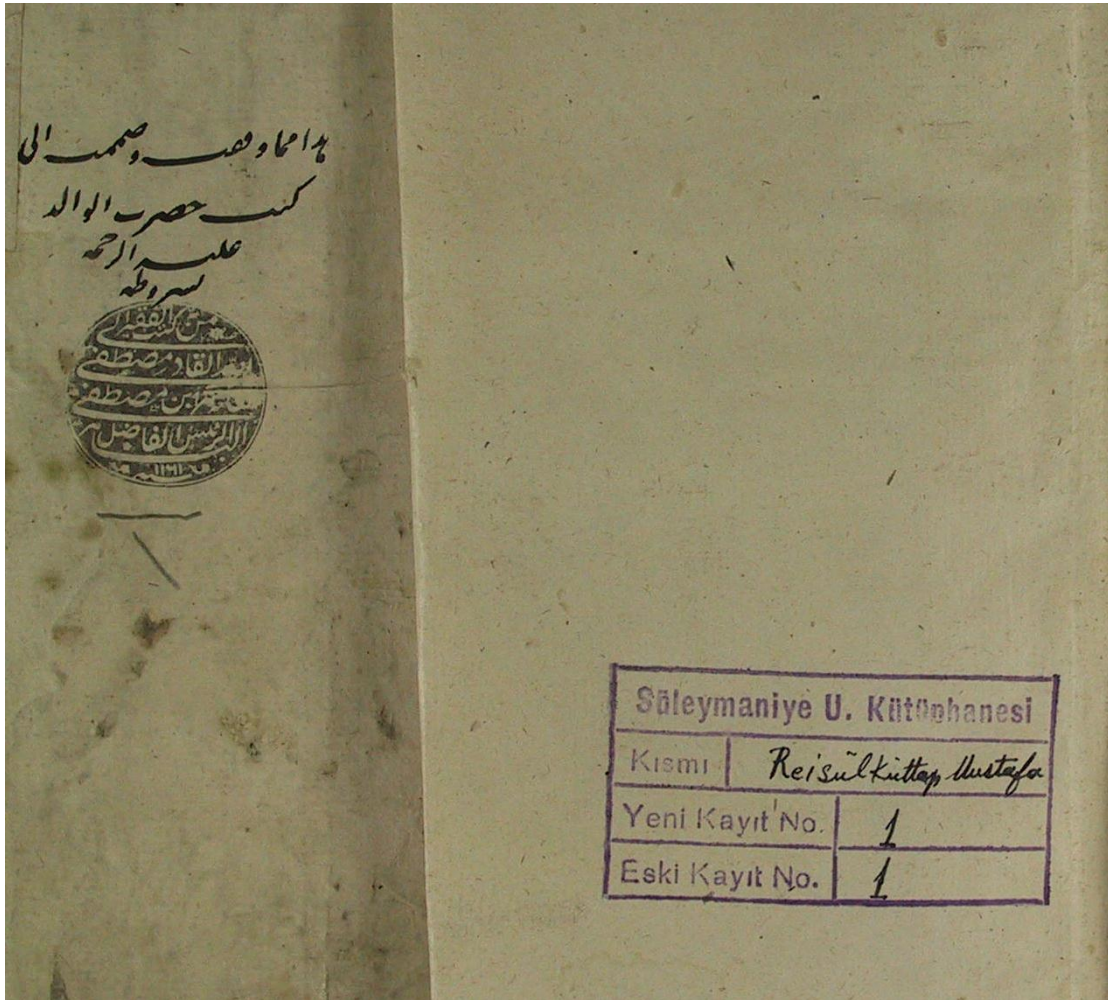 هذا مما وقفت وضممت الى
كتب حضرت الوالد
عليه الرحمه
بشروطه
من كتب الفقير الى
القادر مصطفى
بن مصطفى
الفاضل
Süleymaniye U. Kütüphanesi
Kısmı Reisülküttap Mustafa
Yeni Kayıt No. 1
Eski Kayıt No. 1